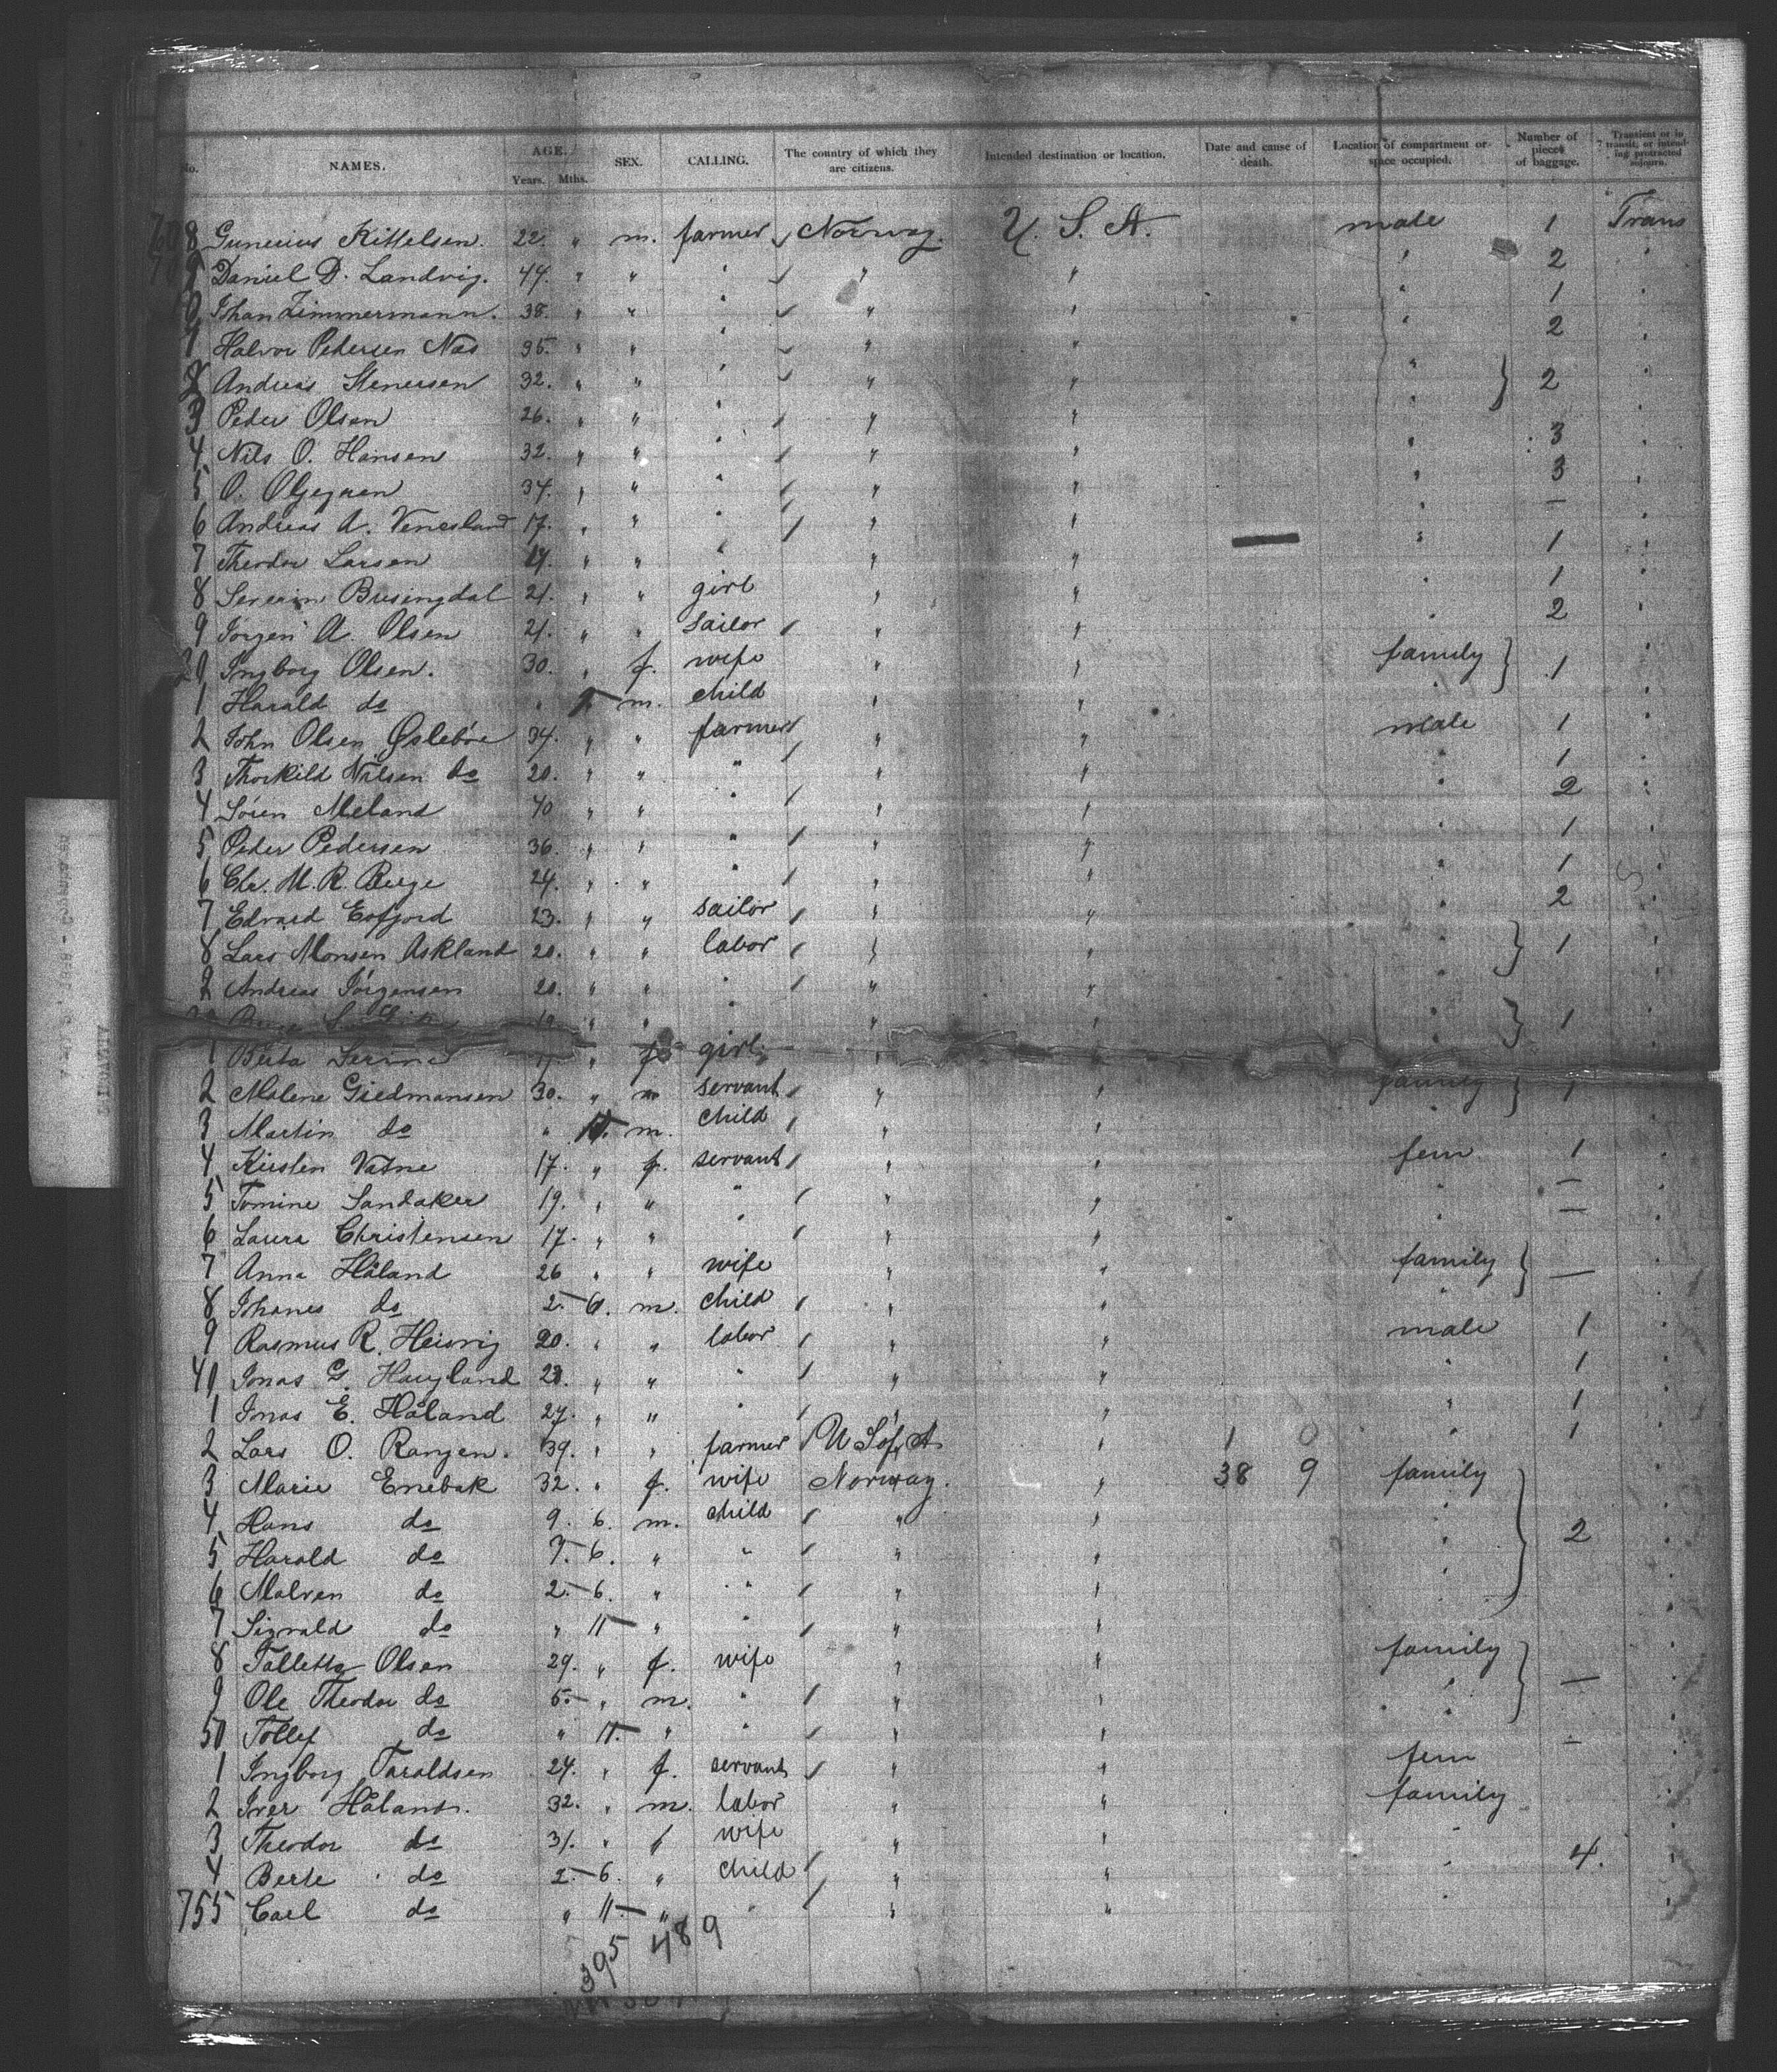 No. NAMES. AGE. Years. Mths. SEX. CALLING. The country of which they are citizens. Intended destination or location. Date and cause of death. Location of compartment or space occupied. Number of pieces of baggage. Transient or in transit, or intending protracted sojourn.
708 Gunerius Kittelsen. 22. " m. farmer Norway. U. S. A. male 1 Trans
709 Daniel D. Landvig. 44. " " " " " " 2 "
10 Johan Zimmermann. 38. " " " " " " 1 "
1 Halvor Pedersen Nas 35. " " " " " " 2 "
2 Andreas Stenersen 32. " " " " " " } 2 "
3 Peder Olsen 26. " " " " " " "
4 Nils O. Hansen 32. " " " " " " 3 "
5 O. 34. " " " " " " 3 "
6 Andreas A. Venesland 17. " " " " " " — "
7 Theodor Larsen 19. " " " " " — " 1 "
8 Severin Busingdal 21. " " girl " " " 1 "
9 Jorgen A. Olsen 21. " " sailor " " " 2 "
20 Ingborg Olsen. 30. " f. wife " " family } 1 "
1 Harald do " m. child " " " "
2 John Olsen Øslebøe 34. " " farmer " " male 1 "
3 Thorkild Nilsen do 20. " " " " " " 1 "
4 Sören Meland 40 " " " " " " 2 "
5 Peder Pedersen 36. " " " " " " 1 "
6 Chr. M. R. Berge 24. " " " " " " 1 "
7 Edvard Eofjord 23. " " sailor " " " 2 "
8 Lars Monsen Askland 20. " " labor " " " } 1 "
9 Andreas Jörgensen 20. " " " " " " "
19 " " " " " " } 1 "
1 Berta " f girl " " "
2 Malene Giedmansen 30. " m servant " " family } 1 "
3 Martin do " 11. m. child " " " "
4 Kirsten Vatne 17. " f. servant " " fem 1 "
5 Tomine Sandaker 19. " " " " " " — "
6 Laura Christensen 17. " " " " " " — "
7 Anna Håland 26 " " wife " " family } — "
8 Johanes do 2. 6. m. child " " " "
9 Rasmus R. Heisvig 20. " " labor " " male 1 "
40 Jonas G. Haugland 28. " " " " " " 1 "
1 Jonas E. Håland 27. " " " " " " 1 "
2 Lars O. Rangen. 39. " " farmer U S of A " 1 0 " 1 "
3 Marie Enebak 32. " f. wife Norway. " 38 9 family "
4 Hans do 9. 6. m. child " " " "
5 Harald do 7. 6. " " " " " } 2 "
6 Malven do 2. 6. " " " " " "
7 Sigvald do " 11 " " " " "
8 Talletta Olsen 29. " f. wife " " family "
9 Ole Theodor do 5. " m. " " " " } — "
50 Tollef do " 11. " " " " " — "
1 Ingborg Taraldsen 24. " f. servant " " fem "
2 Iver Håland. 32. " m. labor " " family "
3 Theodor do 31. " f wife " " " "
4 Berte do 2. 6. " child " " " 4. "
755 Carl do " 11. " " " " " "
395 489